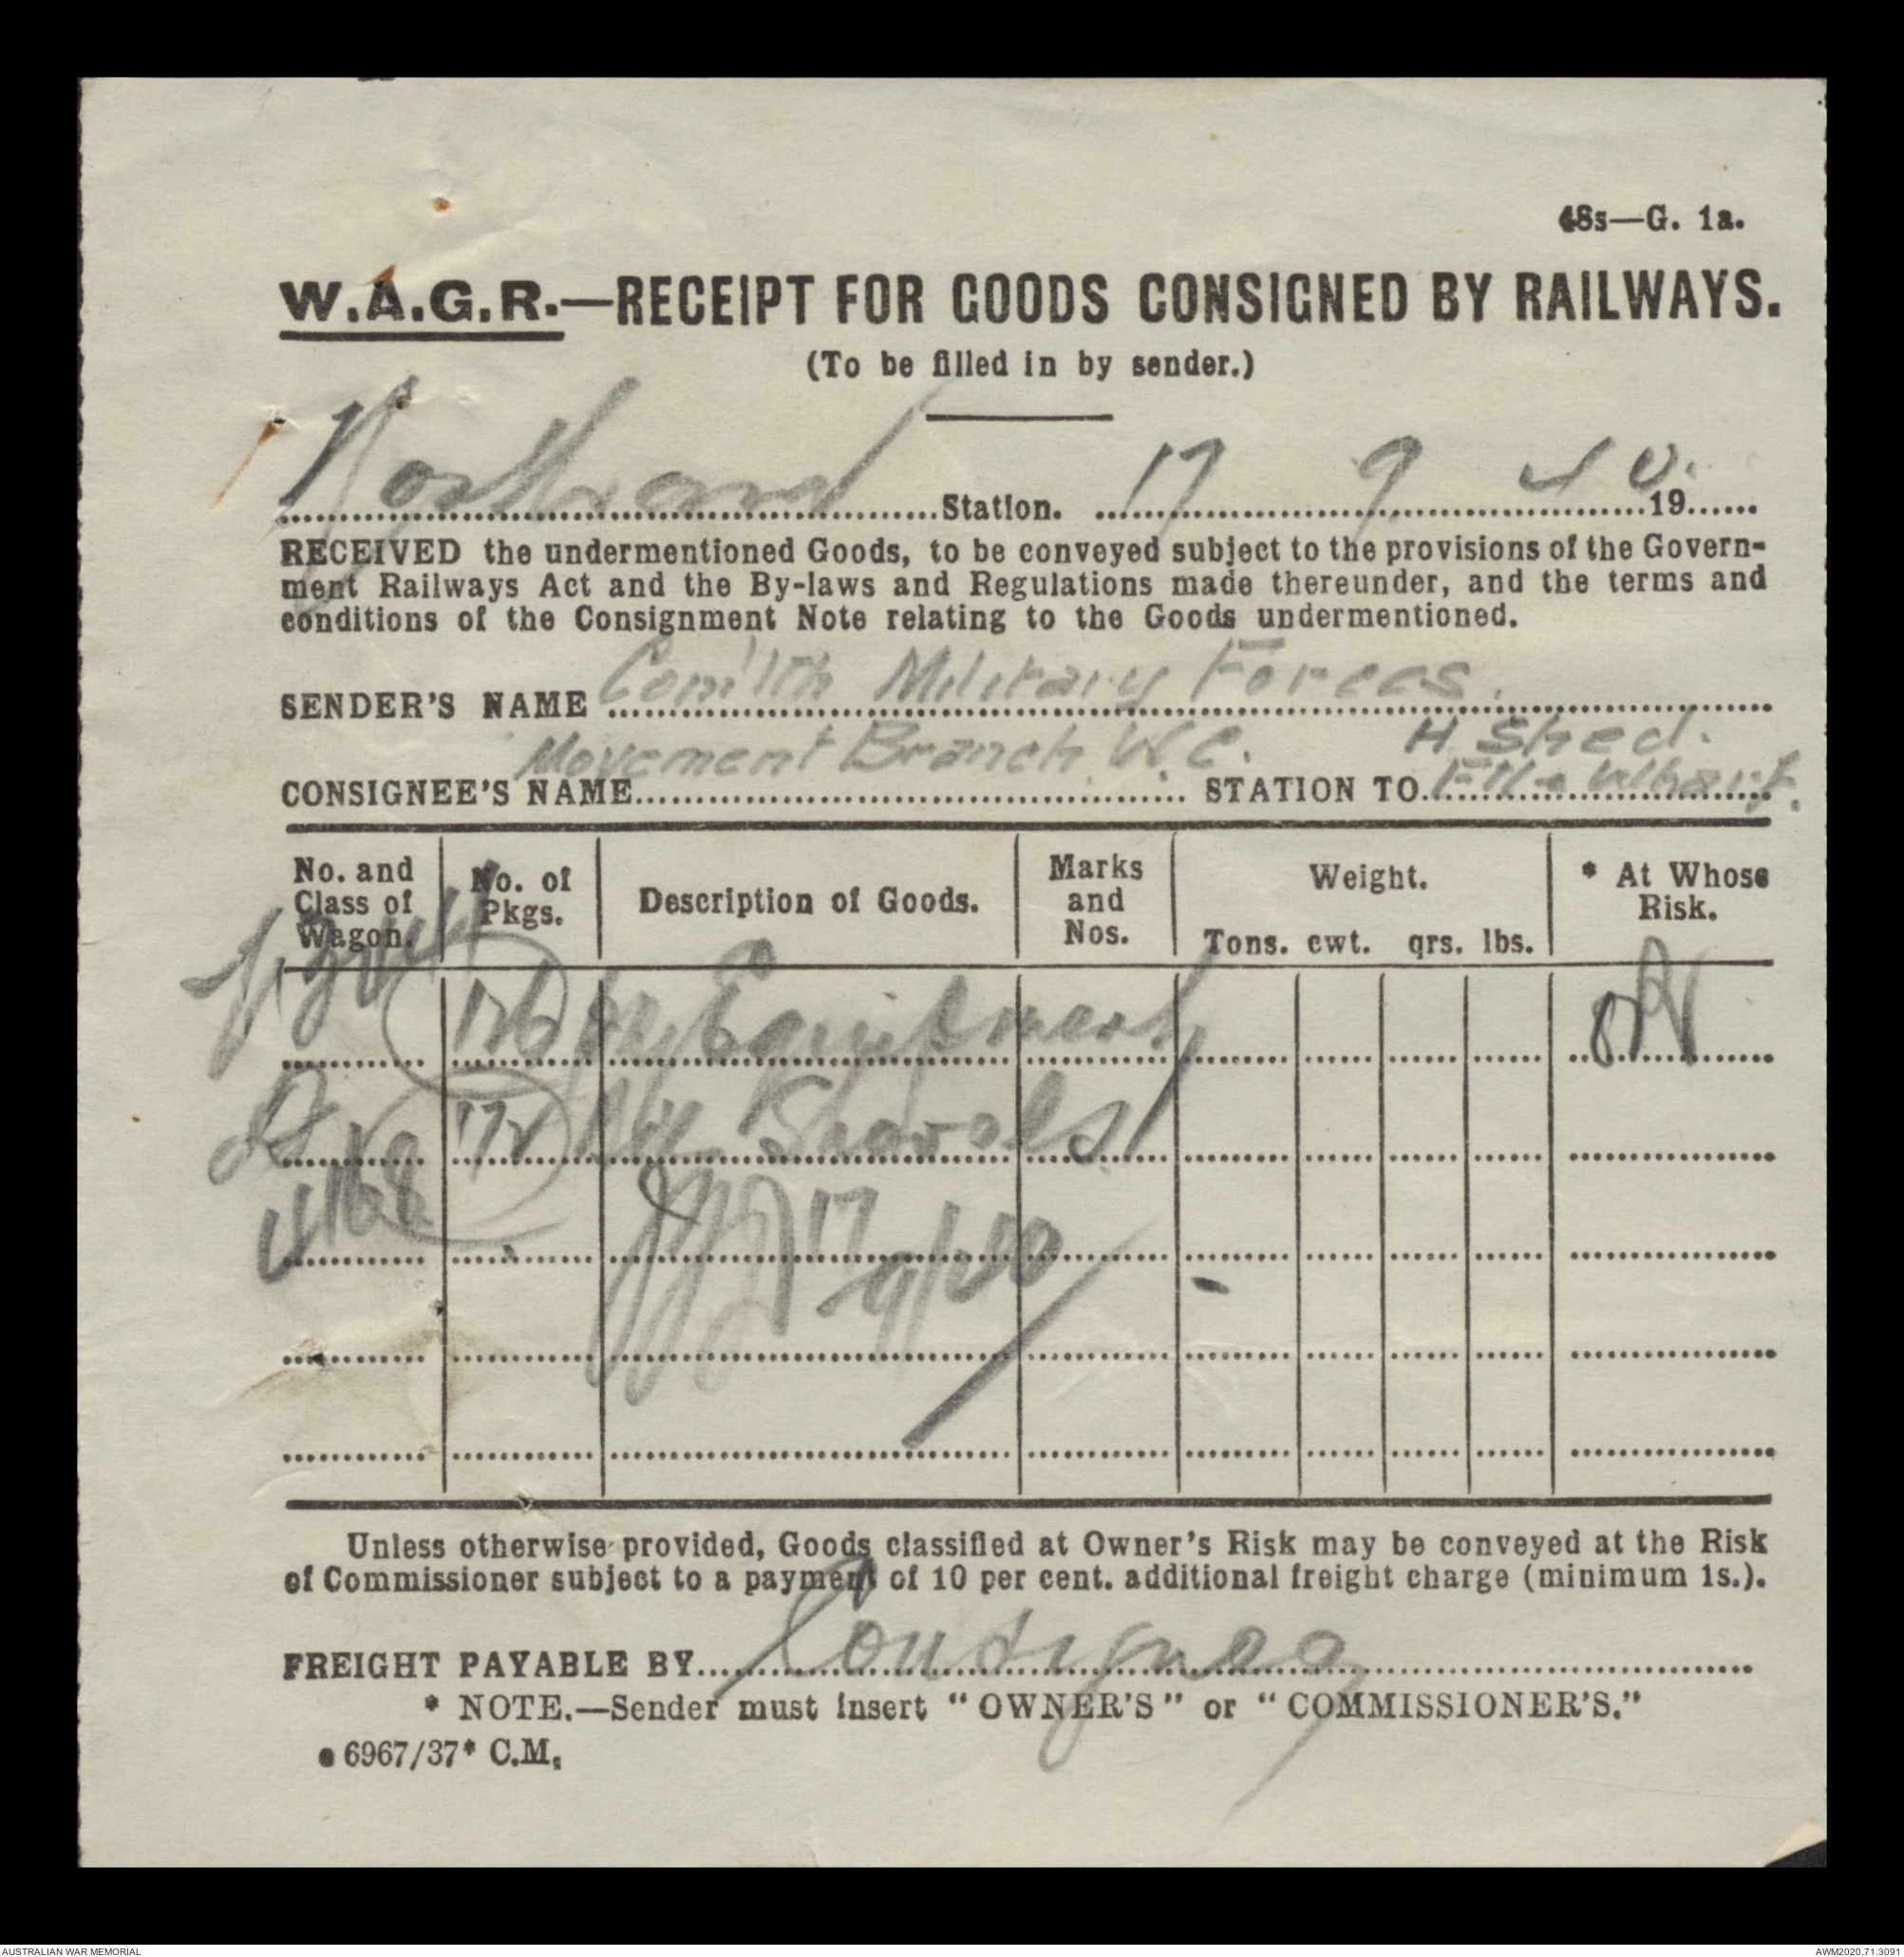 48s—G. 1a.
W.A.G.R.—RECEIPT FOR GOODS CONSIGNED BY RAILWAYS.
(To be filled in by sender.)
Station. 17 9 40. 19......
RECEIVED the undermentioned Goods, to be conveyed subject to the provisions of the Govern-
ment Railways Act and the By-laws and Regulations made thereunder, and the terms and
conditions of the Consignment Note relating to the Goods undermentioned.
SENDER'S NAME Com'lth Military Forces.
Movement Branch W.C. H Shed.
CONSIGNEE'S NAME STATION TO F'tle Wharf.
No. and Class of Wagon. No. of Pkgs. Description of Goods. Marks and Nos. Weight. Tons. cwt. qrs. lbs. * At Whose Risk.
Equipment OR
172 Shovels
4168 17/9/40
Unless otherwise provided, Goods classified at Owner's Risk may be conveyed at the Risk
of Commissioner subject to a payment of 10 per cent. additional freight charge (minimum 1s.).
FREIGHT PAYABLE BY Consignee
* NOTE.—Sender must insert "OWNER'S" or "COMMISSIONER'S."
6967/37* C.M.
AUSTRALIAN WAR MEMORIAL
AWM2020.71.3091